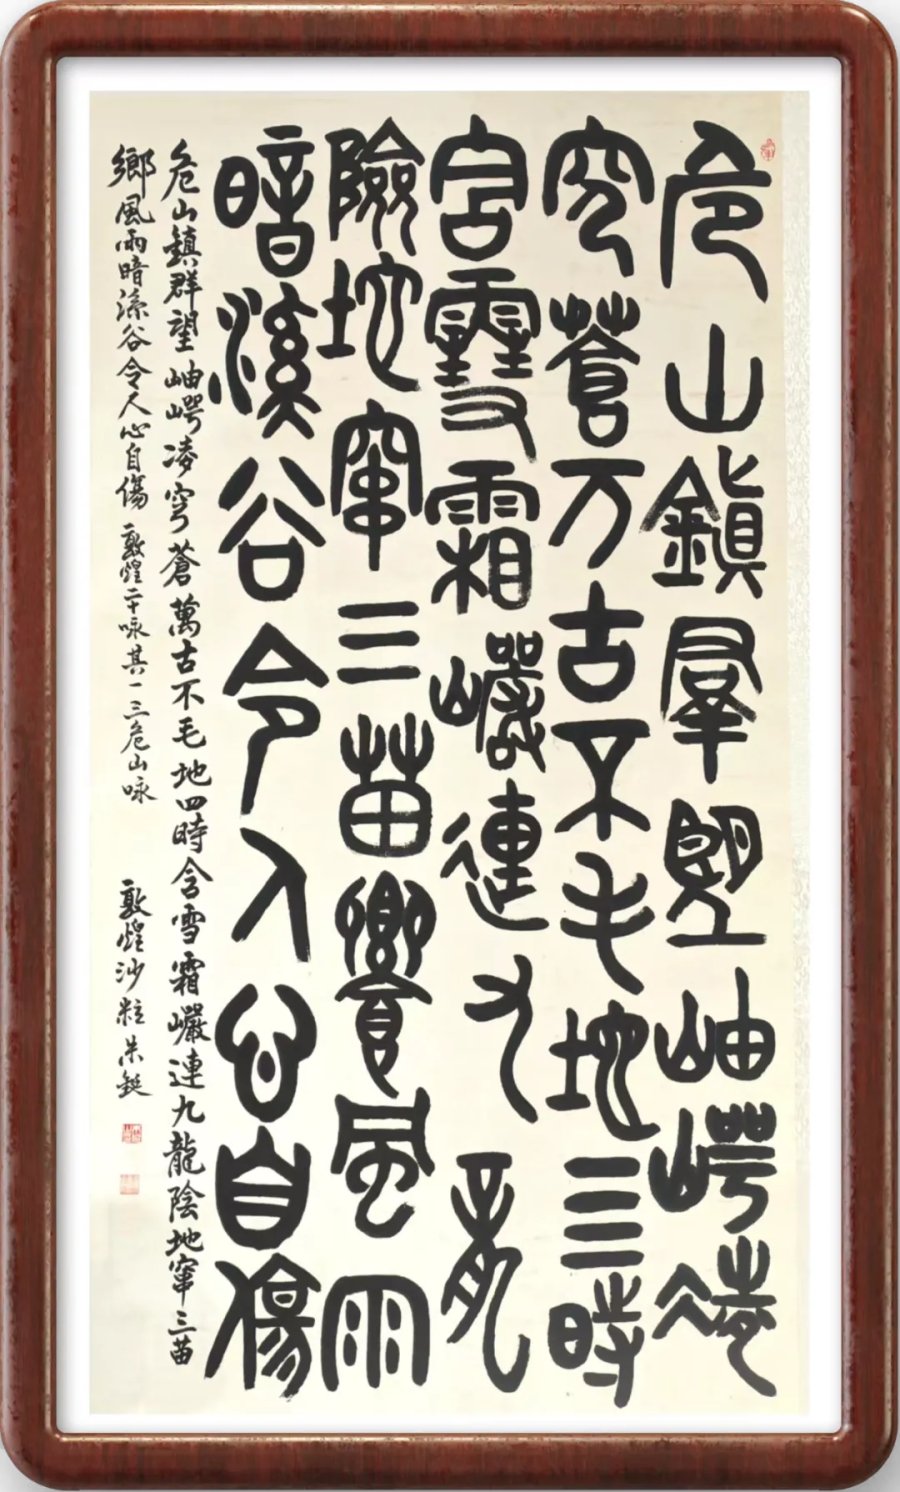 危山鎮羣望岫崿凌
穹蒼万古不毛地亖時
含雪霜巗連九龍
險地竄三苗鄉風雨
暗溪谷令人心自傷
危山鎮群望岫崿凌穹蒼萬古不毛地四時含雪霜巗連九龍陰地竄三苗
鄉風雨暗溪谷令人心自傷 敦煌二十咏其一三危山咏 敦煌沙粒朱鋌